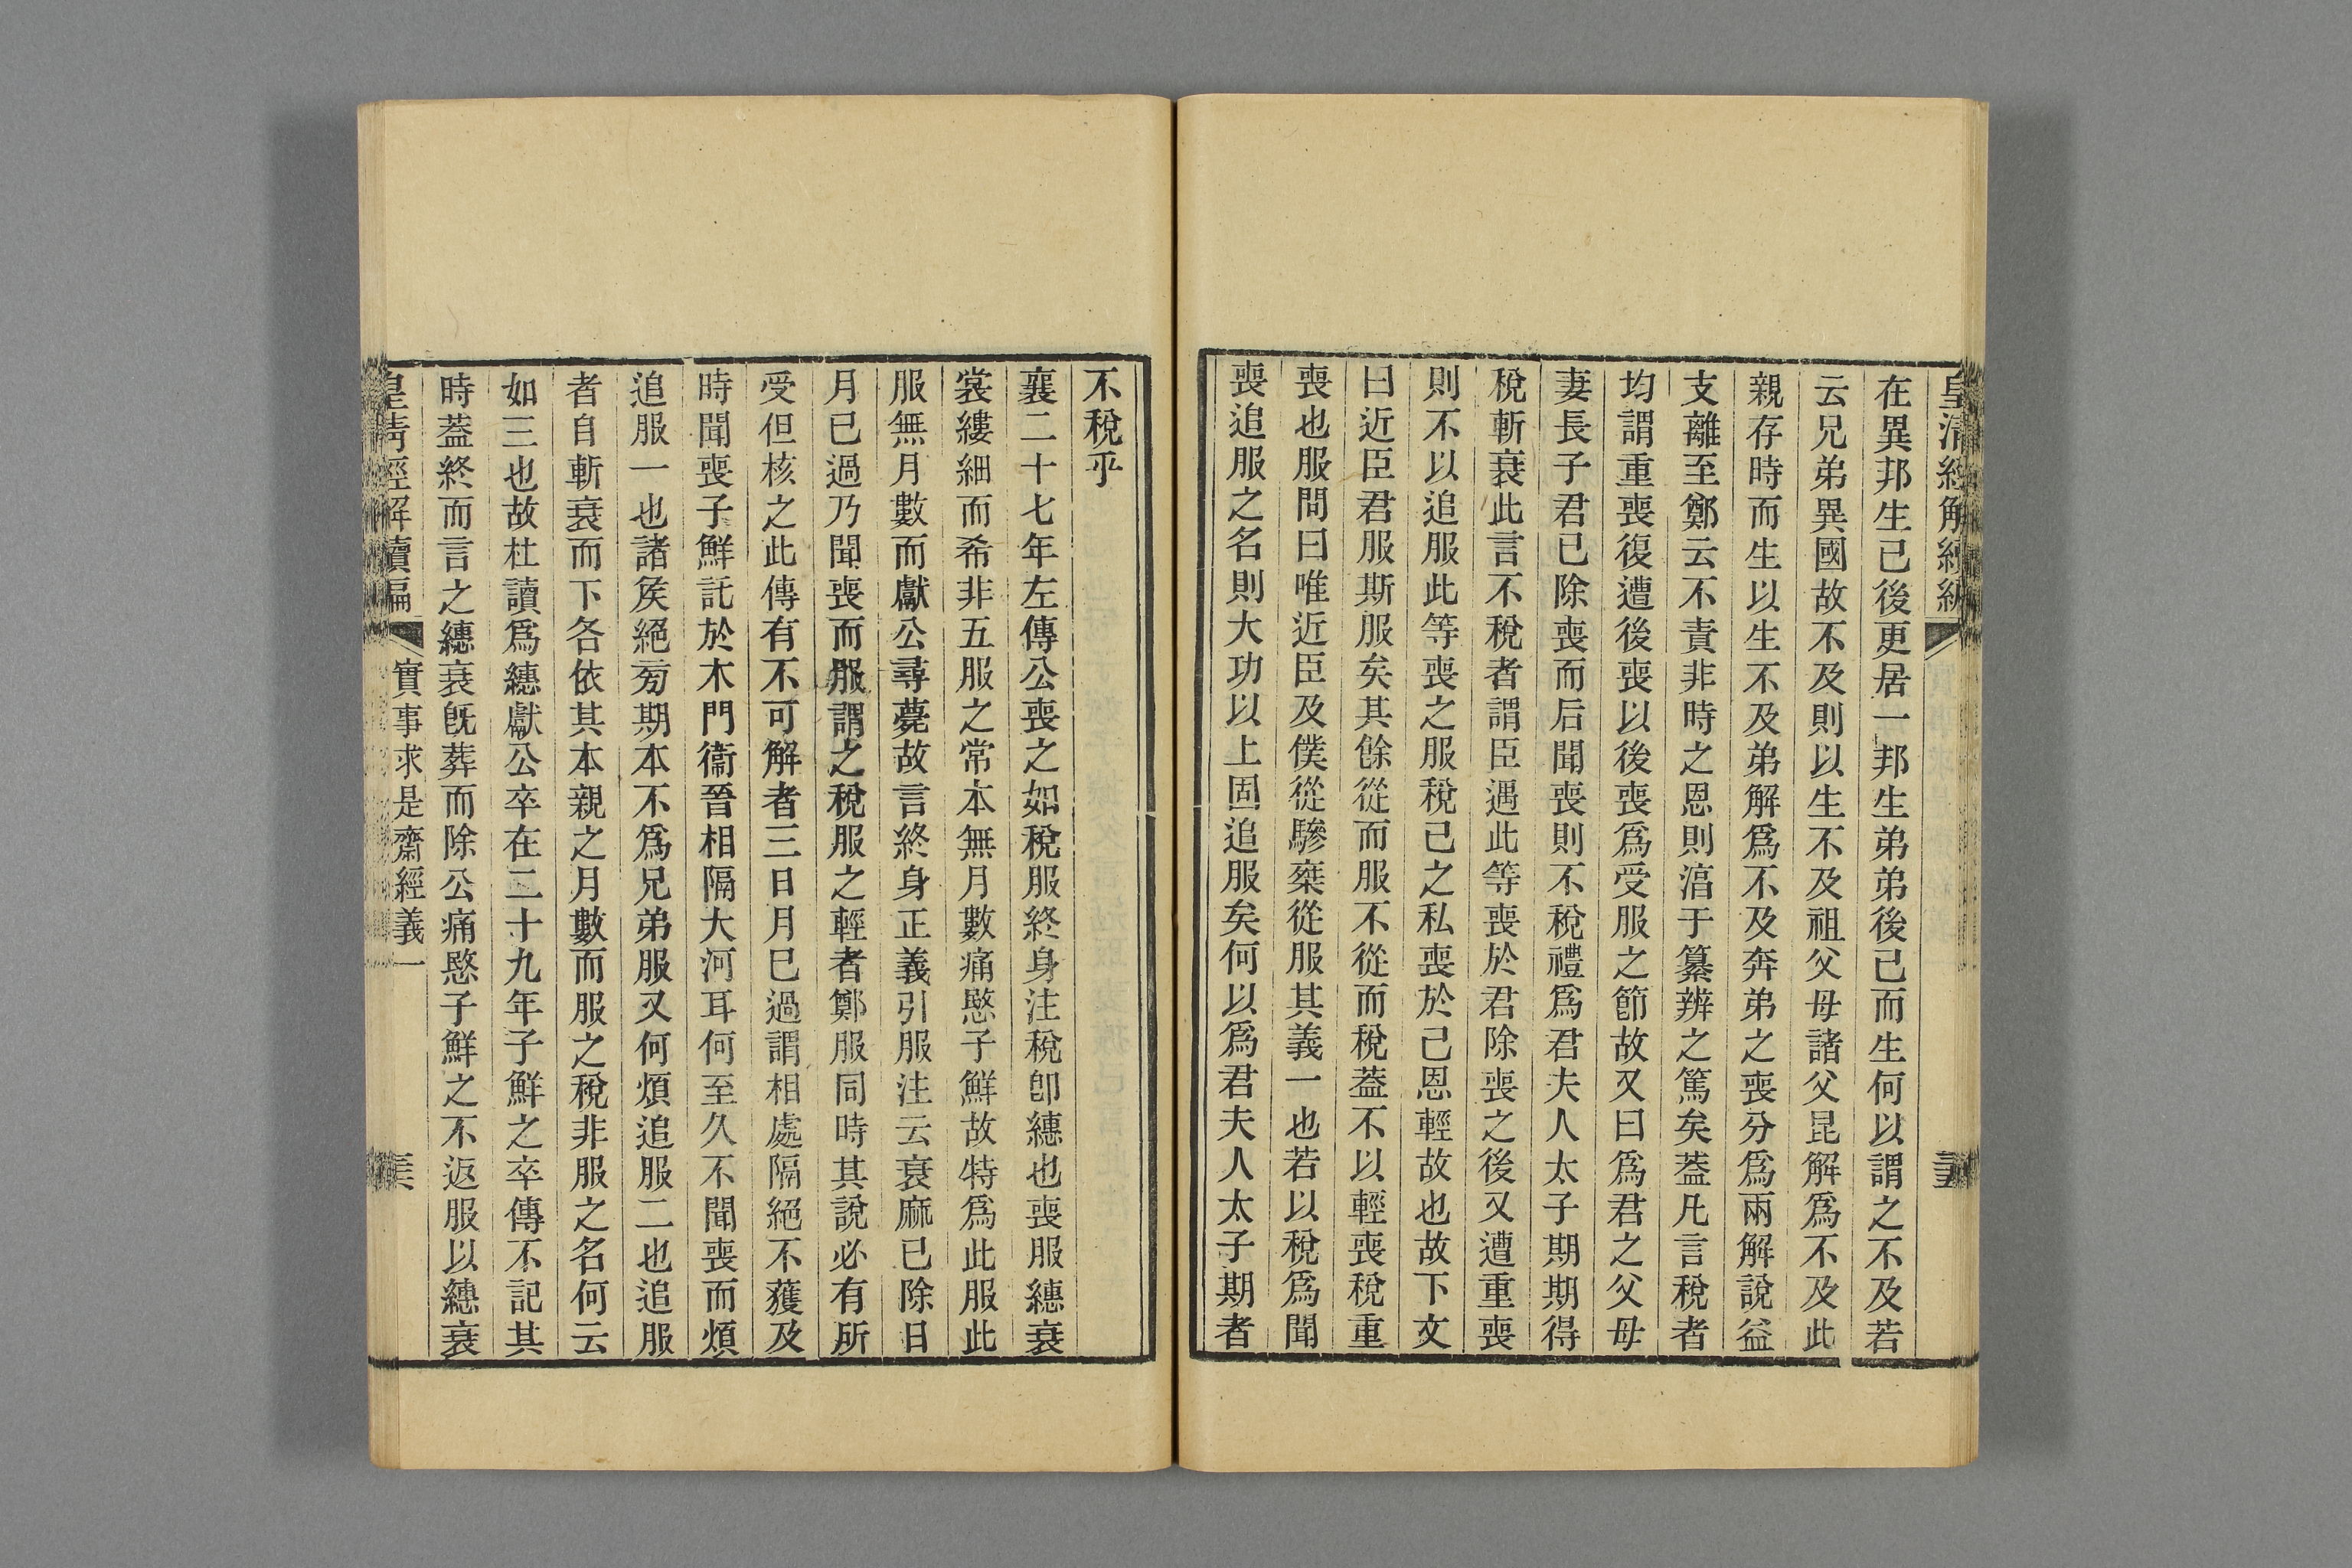 皇清經解續編
在異邦生己後更居一邦生弟弟後己而生何以謂之不及若
云兄弟異國故不及則以生不及祖父母諸父昆解爲不及此
親存時而生以生不及弟解爲不及奔弟之喪分爲兩解說益
支離至鄭云不責非時之恩則湻于纂辨之篤矣葢凡言稅者
均謂重喪復遭後喪以後喪爲受服之節故又曰爲君之父母
妻長子君已除喪而后聞喪則不稅禮爲君夫人太子期期得
稅斬衰此言不稅者謂臣遇此等喪於君除喪之後又遭重喪
則不以追服此等喪之服稅己之私喪於己恩輕故也故下文
曰近臣君服斯服矣其餘從而服不從而稅葢不以輕喪稅重
喪也服問曰唯近臣及僕從驂椉從服其義一也若以稅爲聞
喪追服之名則大功以上固追服矣何以爲君夫人太子期者
不稅乎
襄二十七年左傳公喪之如稅服終身注稅卽繐也喪服繐衰
裳縷細而希非五服之常本無月數痛愍子鮮故特爲此服此
服無月數而獻公尋薨故言終身正義引服注云衰麻已除日
月已過乃聞喪而服謂之稅服之輕者鄭服同時其說必有所
受但核之此傳有不可解者三日月已過謂相處隔絕不獲及
時聞喪子鮮託於木門衞晉相隔大河耳何至久不聞喪而煩
追服一也諸矦絕㫄期本不爲兄弟服又何煩追服二也追服
者自斬衰而下各依其本親之月數而服之稅非服之名何云
如三也故杜讀爲繐獻公卒在二十九年子鮮之卒傳不記其
時葢終而言之繐衰旣葬而除公痛愍子鮮之不返服以繐衰
皇淸經解續編
實事求是齋經義一